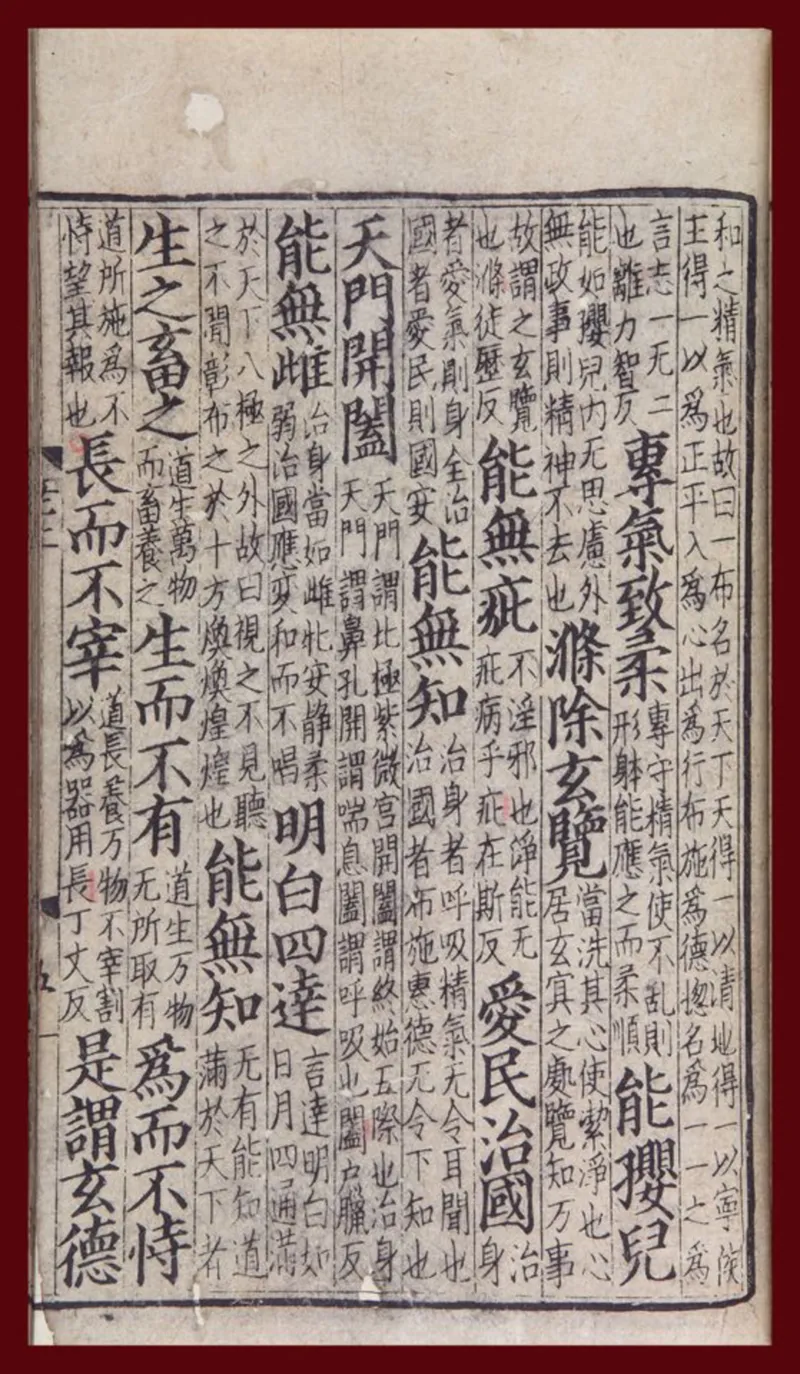 和之精氣也故曰一布名於天下天得一以清地得一以寧侯
王得一以為正平入為心出為行布施為德揔名為一一之為
言志一无二
也離力智反
專氣致柔
專守精氣使不乱則
形躰能應之而柔順
能瓔兒
能如瓔兒内无思慮外
無政事則精神不去也
滌除玄覽
當洗其心使絜淨也心
居玄㝠之處覽知万事
故謂之玄覽
也滌徒歷反
能無疵
不淫邪也淨能无
疵病乎疵在斯反
愛民治國
治
身
者愛氣則身全治
國者愛民則國安
能無知
治身者呼吸精氣无令耳聞也
治國者布施惠德无令下知也
天門開闔
天門謂北極紫微宮開闔謂終始五際也治身
天門謂鼻孔開謂喘息闔謂呼吸也闔户臘反
能無雌
治身當如雌牝安静柔
弱治國應变和而不唱
明白四達
言達明白如
日月四通滿
於天下八極之外故曰視之不見聽
之不聞彰布之於十方煥煥煌煌也
能無知
无有能知道
滿於天下者
生之畜之
道生萬物
而畜養之
生而不有
道生万物
无所取有
爲而不恃
道所施為不
恃望其報也
長而不宰
道長養万物不宰割
以為器用長丁丈反
是謂玄德